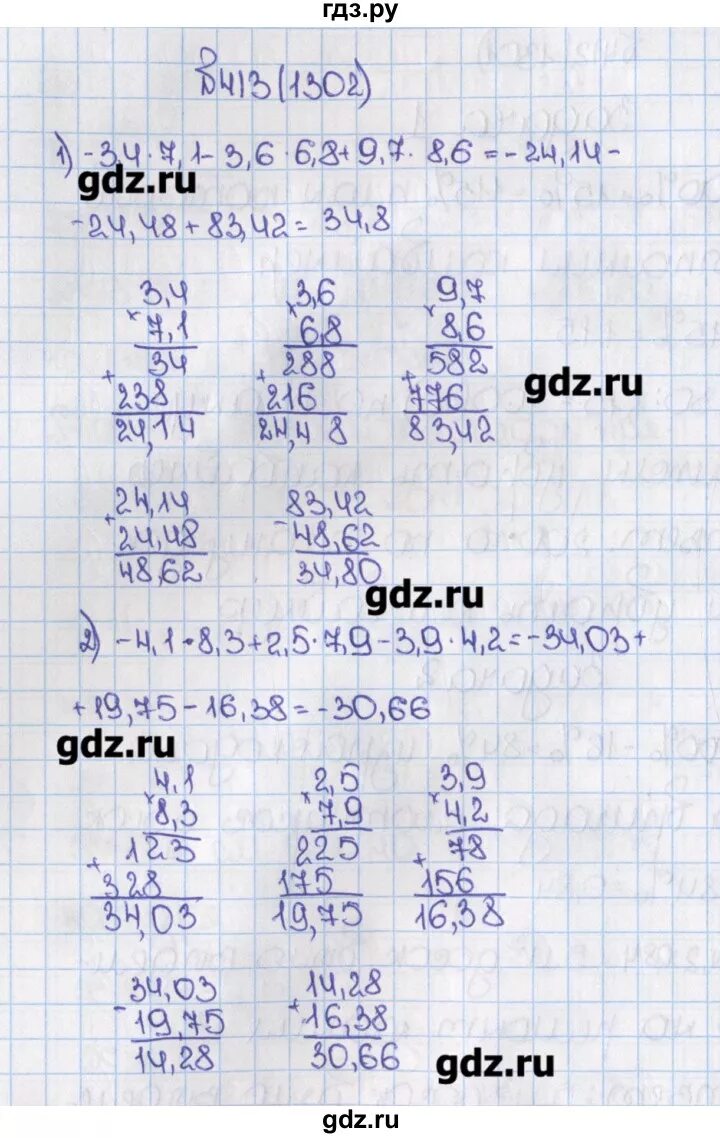 гдз.ру
№413(1302)
1) -3,4·7,1-3,6·6,8+9,7·8,6=-24,14-
gdz.ru
-24,48+83,42=34,8
3,4
×7,1
34
+238
24,14
3,6
×6,8
288
+216
24,48
9,7
×8,6
582
+776
83,42
gdz.ru
24,14
+24,48
48,62
83,42
-48,62
34,80
gdz.ru
2) -4,1·8,3+2,5·7,9-3,9·4,2=-34,03+
+19,75-16,38=-30,66
gdz.ru
4,1
×8,3
123
+328
34,03
2,5
×7,9
225
175
19,75
3,9
×4,2
78
+156
16,38
34,03
-19,75
14,28
14,28
+16,38
30,66
gdz.ru
gdz.ru